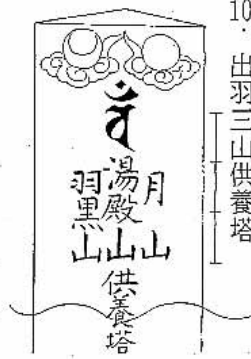 10. 出羽三山供養塔
月山
湯殿山
羽黒山
供養塔